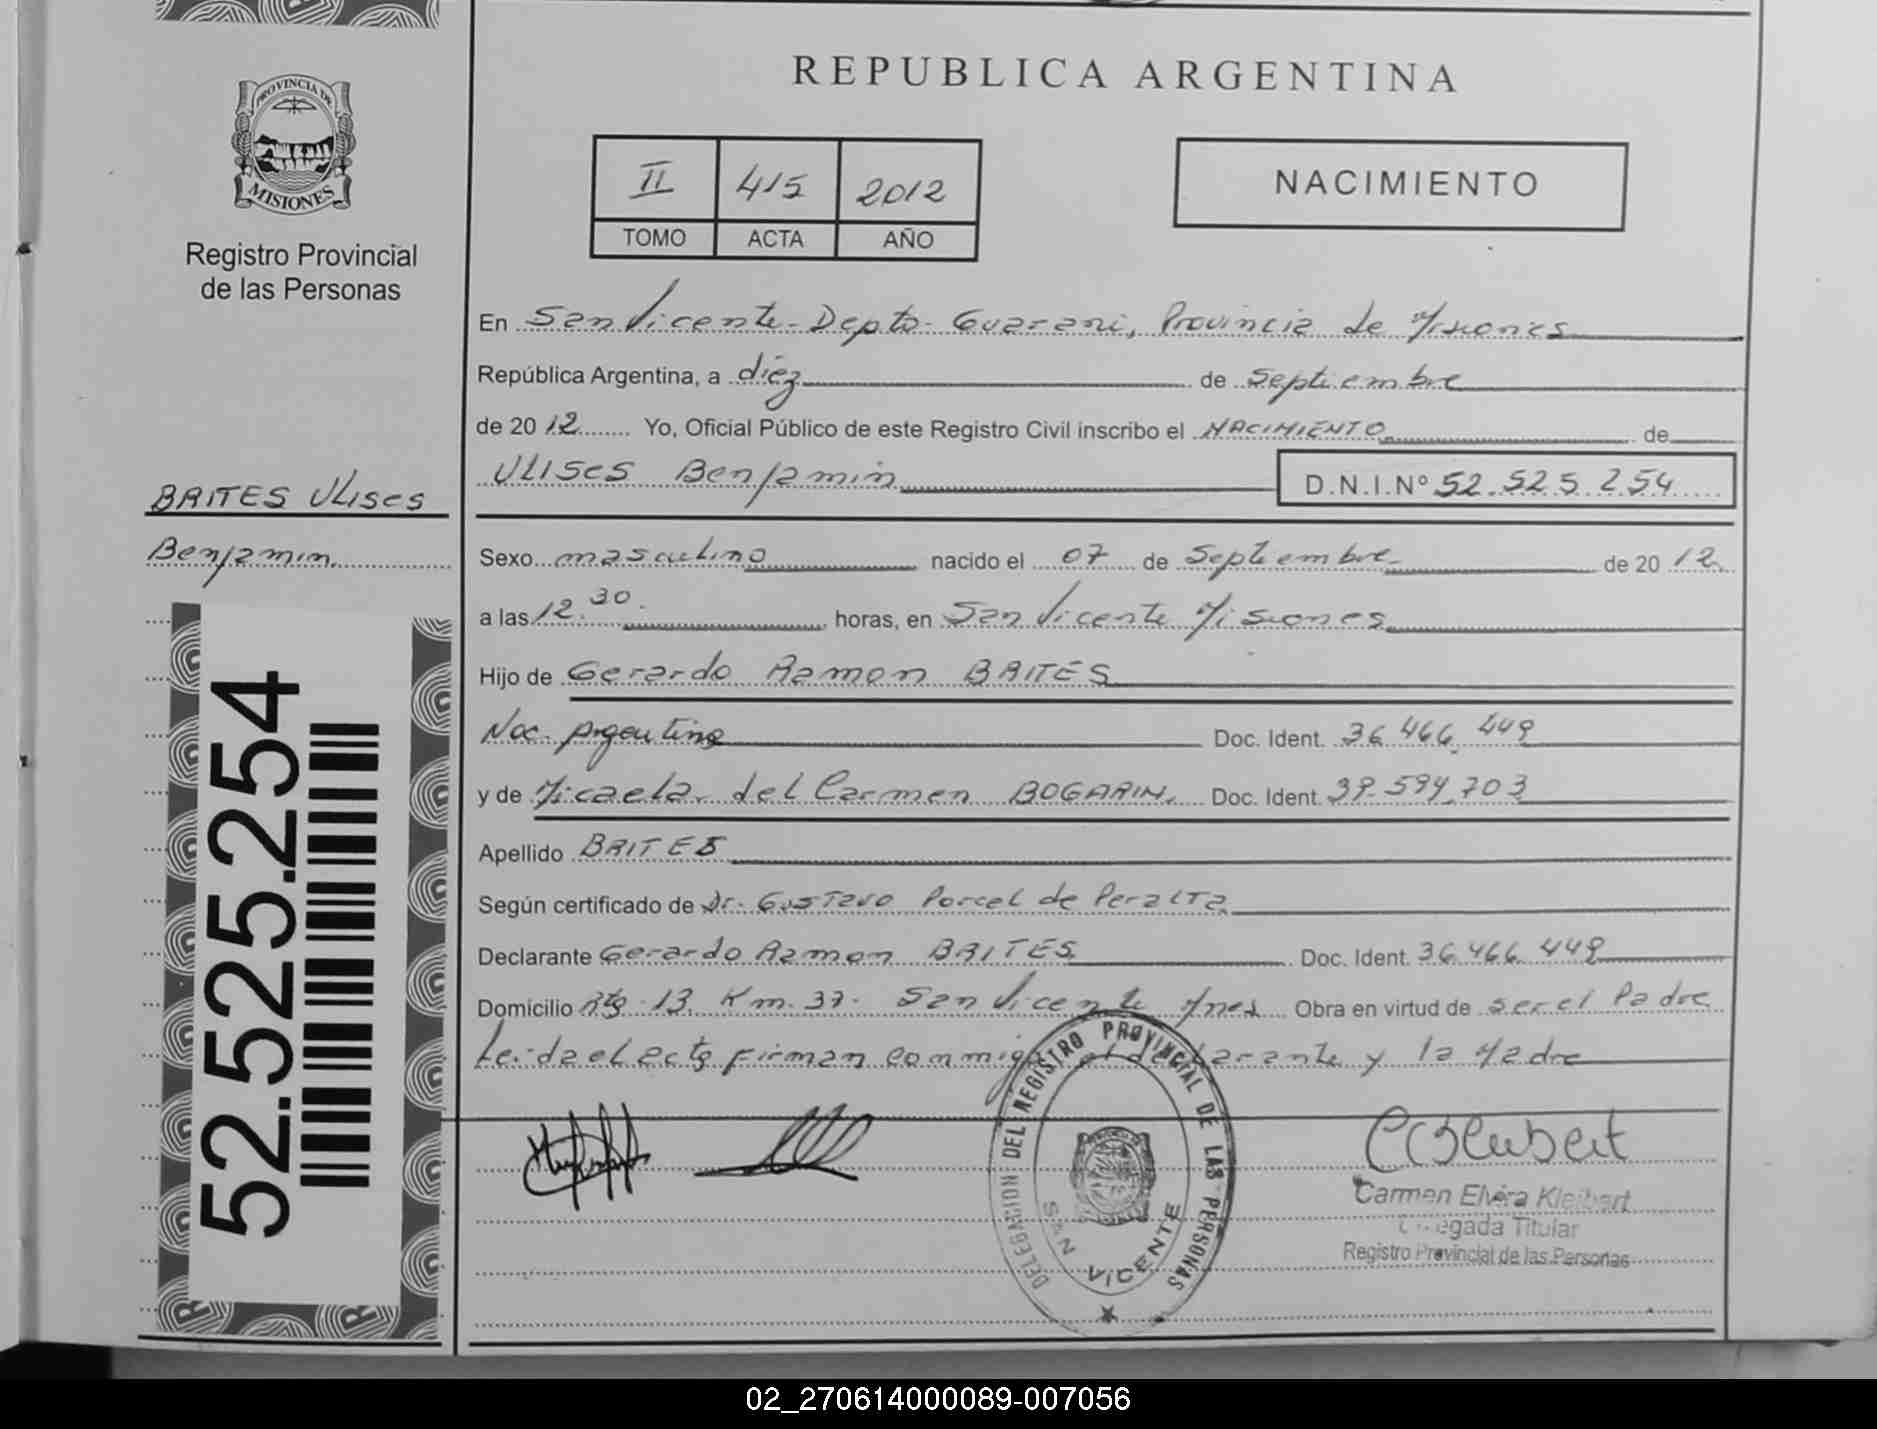 PROVINCIA DE
MISIONES
Registro Provincial
de las Personas
BRITES Ulises
Benjamin
52.525.254
REPUBLICA ARGENTINA
II 415 2012
TOMO ACTA AÑO
NACIMIENTO
En San Vicente - Depto - Guarani, Provincia de Misiones
República Argentina, a diez de Septiembre
de 2012 Yo, Oficial Público de este Registro Civil inscribo el NACIMIENTO de
Ulises Benjamin D.N.I.Nº 52.525.254
Sexo masculino nacido el 07 de Septiembre de 2012
a las 12.30. horas, en San Vicente Misiones
Hijo de Gerardo Ramon BRITES
Nac. Argentina Doc. Ident. 36.466.449
y de Micaela del Carmen BOGARIN. Doc. Ident. 39.594.703
Apellido BRITES
Según certificado de Dr. Gustavo Porcel de Peralta
Declarante Gerardo Ramon BRITES Doc. Ident. 36.466.449
Domicilio Rta 13 Km. 37. San Vicente Mnes Obra en virtud de ser el Padre
Leida el acta firman conmigo el declarante y la Madre
DELEGACION DEL REGISTRO PROVINCIAL DE LAS PERSONAS
SAN VICENTE
Carmen Elvira Kleibert
Delegada Titular
Registro Provincial de las Personas
02_270614000089-007056